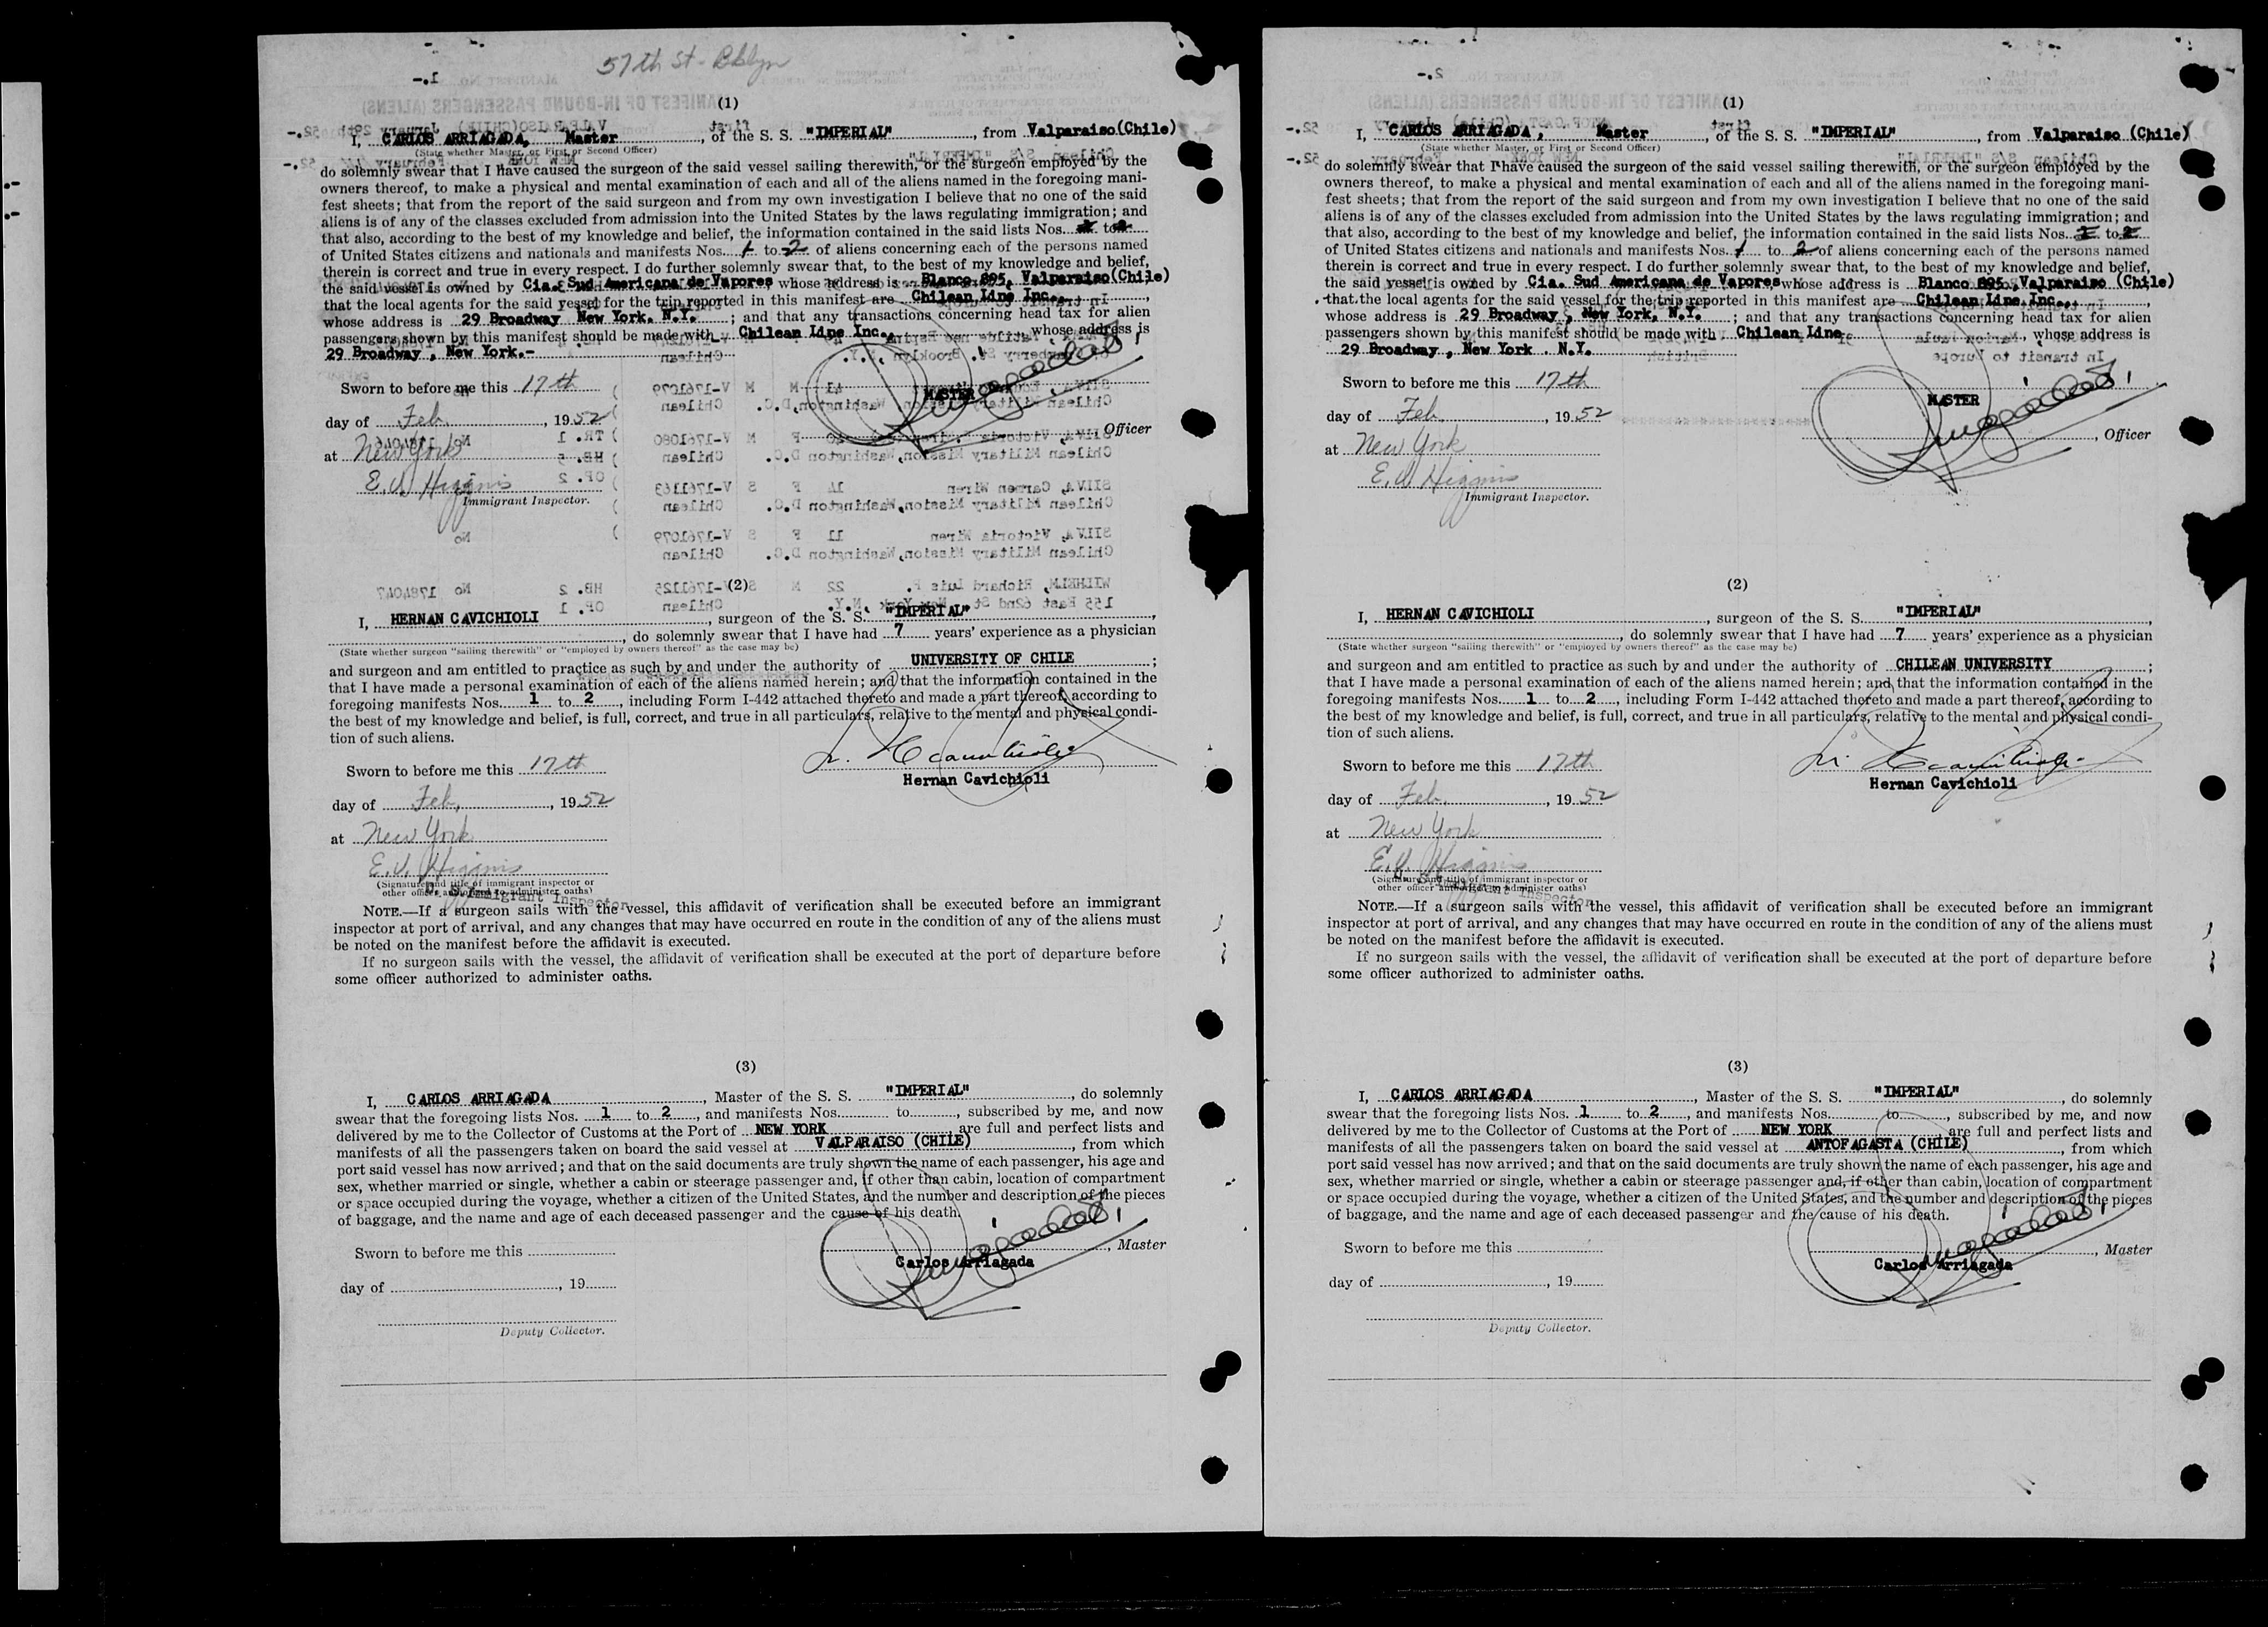 57th St - Bklyn
(1)
I, CARLOS ARRIAGADA, Master, of the S. S. "IMPERIAL", from Valparaiso(Chile)
(State whether Master, or First or Second Officer)
do solemnly swear that I have caused the surgeon of the said vessel sailing therewith, or the surgeon employed by the
owners thereof, to make a physical and mental examination of each and all of the aliens named in the foregoing mani-
fest sheets; that from the report of the said surgeon and from my own investigation I believe that no one of the said
aliens is of any of the classes excluded from admission into the United States by the laws regulating immigration; and
that also, according to the best of my knowledge and belief, the information contained in the said lists Nos. to
of United States citizens and nationals and manifests Nos. 1 to 2 of aliens concerning each of the persons named
therein is correct and true in every respect. I do further solemnly swear that, to the best of my knowledge and belief,
the said vessel is owned by Cia. Sud Americana de Vapores whose address is Blanco 895, Valparaiso(Chile)
that the local agents for the said vessel for the trip reported in this manifest are Chilean Line Inc.,
whose address is 29 Broadway New York. N.Y. ; and that any transactions concerning head tax for alien
passengers shown by this manifest should be made with Chilean Line Inc., whose address is
29 Broadway, New York.-
Sworn to before me this 17th
MASTER
day of Feb, 1952
, Officer
at New York
E.V. Higgins
Immigrant Inspector.
(2)
I, HERNAN CAVICHIOLI, surgeon of the S. S. "IMPERIAL",
, do solemnly swear that I have had 7 years' experience as a physician
(State whether surgeon "sailing therewith" or "employed by owners thereof" as the case may be)
and surgeon and am entitled to practice as such by and under the authority of UNIVERSITY OF CHILE ;
that I have made a personal examination of each of the aliens named herein; and that the information contained in the
foregoing manifests Nos. 1 to 2, including Form I-442 attached thereto and made a part thereof, according to
the best of my knowledge and belief, is full, correct, and true in all particulars, relative to the mental and physical condi-
tion of such aliens.
Sworn to before me this 17th
Hernan Cavichioli
day of Feb, 1952
at New York
E.V. Higgins
(Signature and title of immigrant inspector or
other officer authorized to administer oaths)
U. S. Immigrant Inspector
NOTE.—If a surgeon sails with the vessel, this affidavit of verification shall be executed before an immigrant
inspector at port of arrival, and any changes that may have occurred en route in the condition of any of the aliens must
be noted on the manifest before the affidavit is executed.
If no surgeon sails with the vessel, the affidavit of verification shall be executed at the port of departure before
some officer authorized to administer oaths.
(3)
I, CARLOS ARRIAGADA, Master of the S. S. "IMPERIAL", do solemnly
swear that the foregoing lists Nos. 1 to 2, and manifests Nos. to, subscribed by me, and now
delivered by me to the Collector of Customs at the Port of NEW YORK are full and perfect lists and
manifests of all the passengers taken on board the said vessel at VALPARAISO (CHILE), from which
port said vessel has now arrived; and that on the said documents are truly shown the name of each passenger, his age and
sex, whether married or single, whether a cabin or steerage passenger and, if other than cabin, location of compartment
or space occupied during the voyage, whether a citizen of the United States, and the number and description of the pieces
of baggage, and the name and age of each deceased passenger and the cause of his death.
Sworn to before me this
, Master
Carlos Arriagada
day of , 19
Deputy Collector.
(1)
I, CARLOS ARRIAGADA, Master of the S. S. "IMPERIAL", from Valparaiso (Chile)
(State whether Master, or First or Second Officer)
do solemnly swear that I have caused the surgeon of the said vessel sailing therewith, or the surgeon employed by the
owners thereof, to make a physical and mental examination of each and all of the aliens named in the foregoing mani-
fest sheets; that from the report of the said surgeon and from my own investigation I believe that no one of the said
aliens is of any of the classes excluded from admission into the United States by the laws regulating immigration; and
that also, according to the best of my knowledge and belief, the information contained in the said lists Nos. to
of United States citizens and nationals and manifests Nos. 1 to 2 of aliens concerning each of the persons named
therein is correct and true in every respect. I do further solemnly swear that, to the best of my knowledge and belief,
the said vessel is owned by Cia. Sud Americana de Vapores whose address is Blanco 895, Valparaiso (Chile)
that the local agents for the said vessel for the trip reported in this manifest are Chilean Line Inc.,
whose address is 29 Broadway, New York, N.Y. ; and that any transactions concerning head tax for alien
passengers shown by this manifest should be made with Chilean Line, whose address is
29 Broadway, New York . N.Y.
Sworn to before me this 17th
MASTER
day of Feb, 1952
, Officer
at New York
E.V. Higgins
Immigrant Inspector.
(2)
I, HERNAN CAVICHIOLI, surgeon of the S. S. "IMPERIAL",
, do solemnly swear that I have had 7 years' experience as a physician
(State whether surgeon "sailing therewith" or "employed by owners thereof" as the case may be)
and surgeon and am entitled to practice as such by and under the authority of CHILEAN UNIVERSITY ;
that I have made a personal examination of each of the aliens named herein; and that the information contained in the
foregoing manifests Nos. 1 to 2, including Form I-442 attached thereto and made a part thereof, according to
the best of my knowledge and belief, is full, correct, and true in all particulars, relative to the mental and physical condi-
tion of such aliens.
Sworn to before me this 17th
Hernan Cavichioli
day of Feb, 1952
at New York
E.V. Higgins
(Signature and title of immigrant inspector or
other officer authorized to administer oaths)
U. S. Immigrant Inspector
NOTE.—If a surgeon sails with the vessel, this affidavit of verification shall be executed before an immigrant
inspector at port of arrival, and any changes that may have occurred en route in the condition of any of the aliens must
be noted on the manifest before the affidavit is executed.
If no surgeon sails with the vessel, the affidavit of verification shall be executed at the port of departure before
some officer authorized to administer oaths.
(3)
I, CARLOS ARRIAGADA, Master of the S. S. "IMPERIAL", do solemnly
swear that the foregoing lists Nos. 1 to 2, and manifests Nos. to, subscribed by me, and now
delivered by me to the Collector of Customs at the Port of NEW YORK are full and perfect lists and
manifests of all the passengers taken on board the said vessel at ANTOFAGASTA (CHILE), from which
port said vessel has now arrived; and that on the said documents are truly shown the name of each passenger, his age and
sex, whether married or single, whether a cabin or steerage passenger and, if other than cabin, location of compartment
or space occupied during the voyage, whether a citizen of the United States, and the number and description of the pieces
of baggage, and the name and age of each deceased passenger and the cause of his death.
Sworn to before me this
, Master
Carlos Arriagada
day of , 19
Deputy Collector.